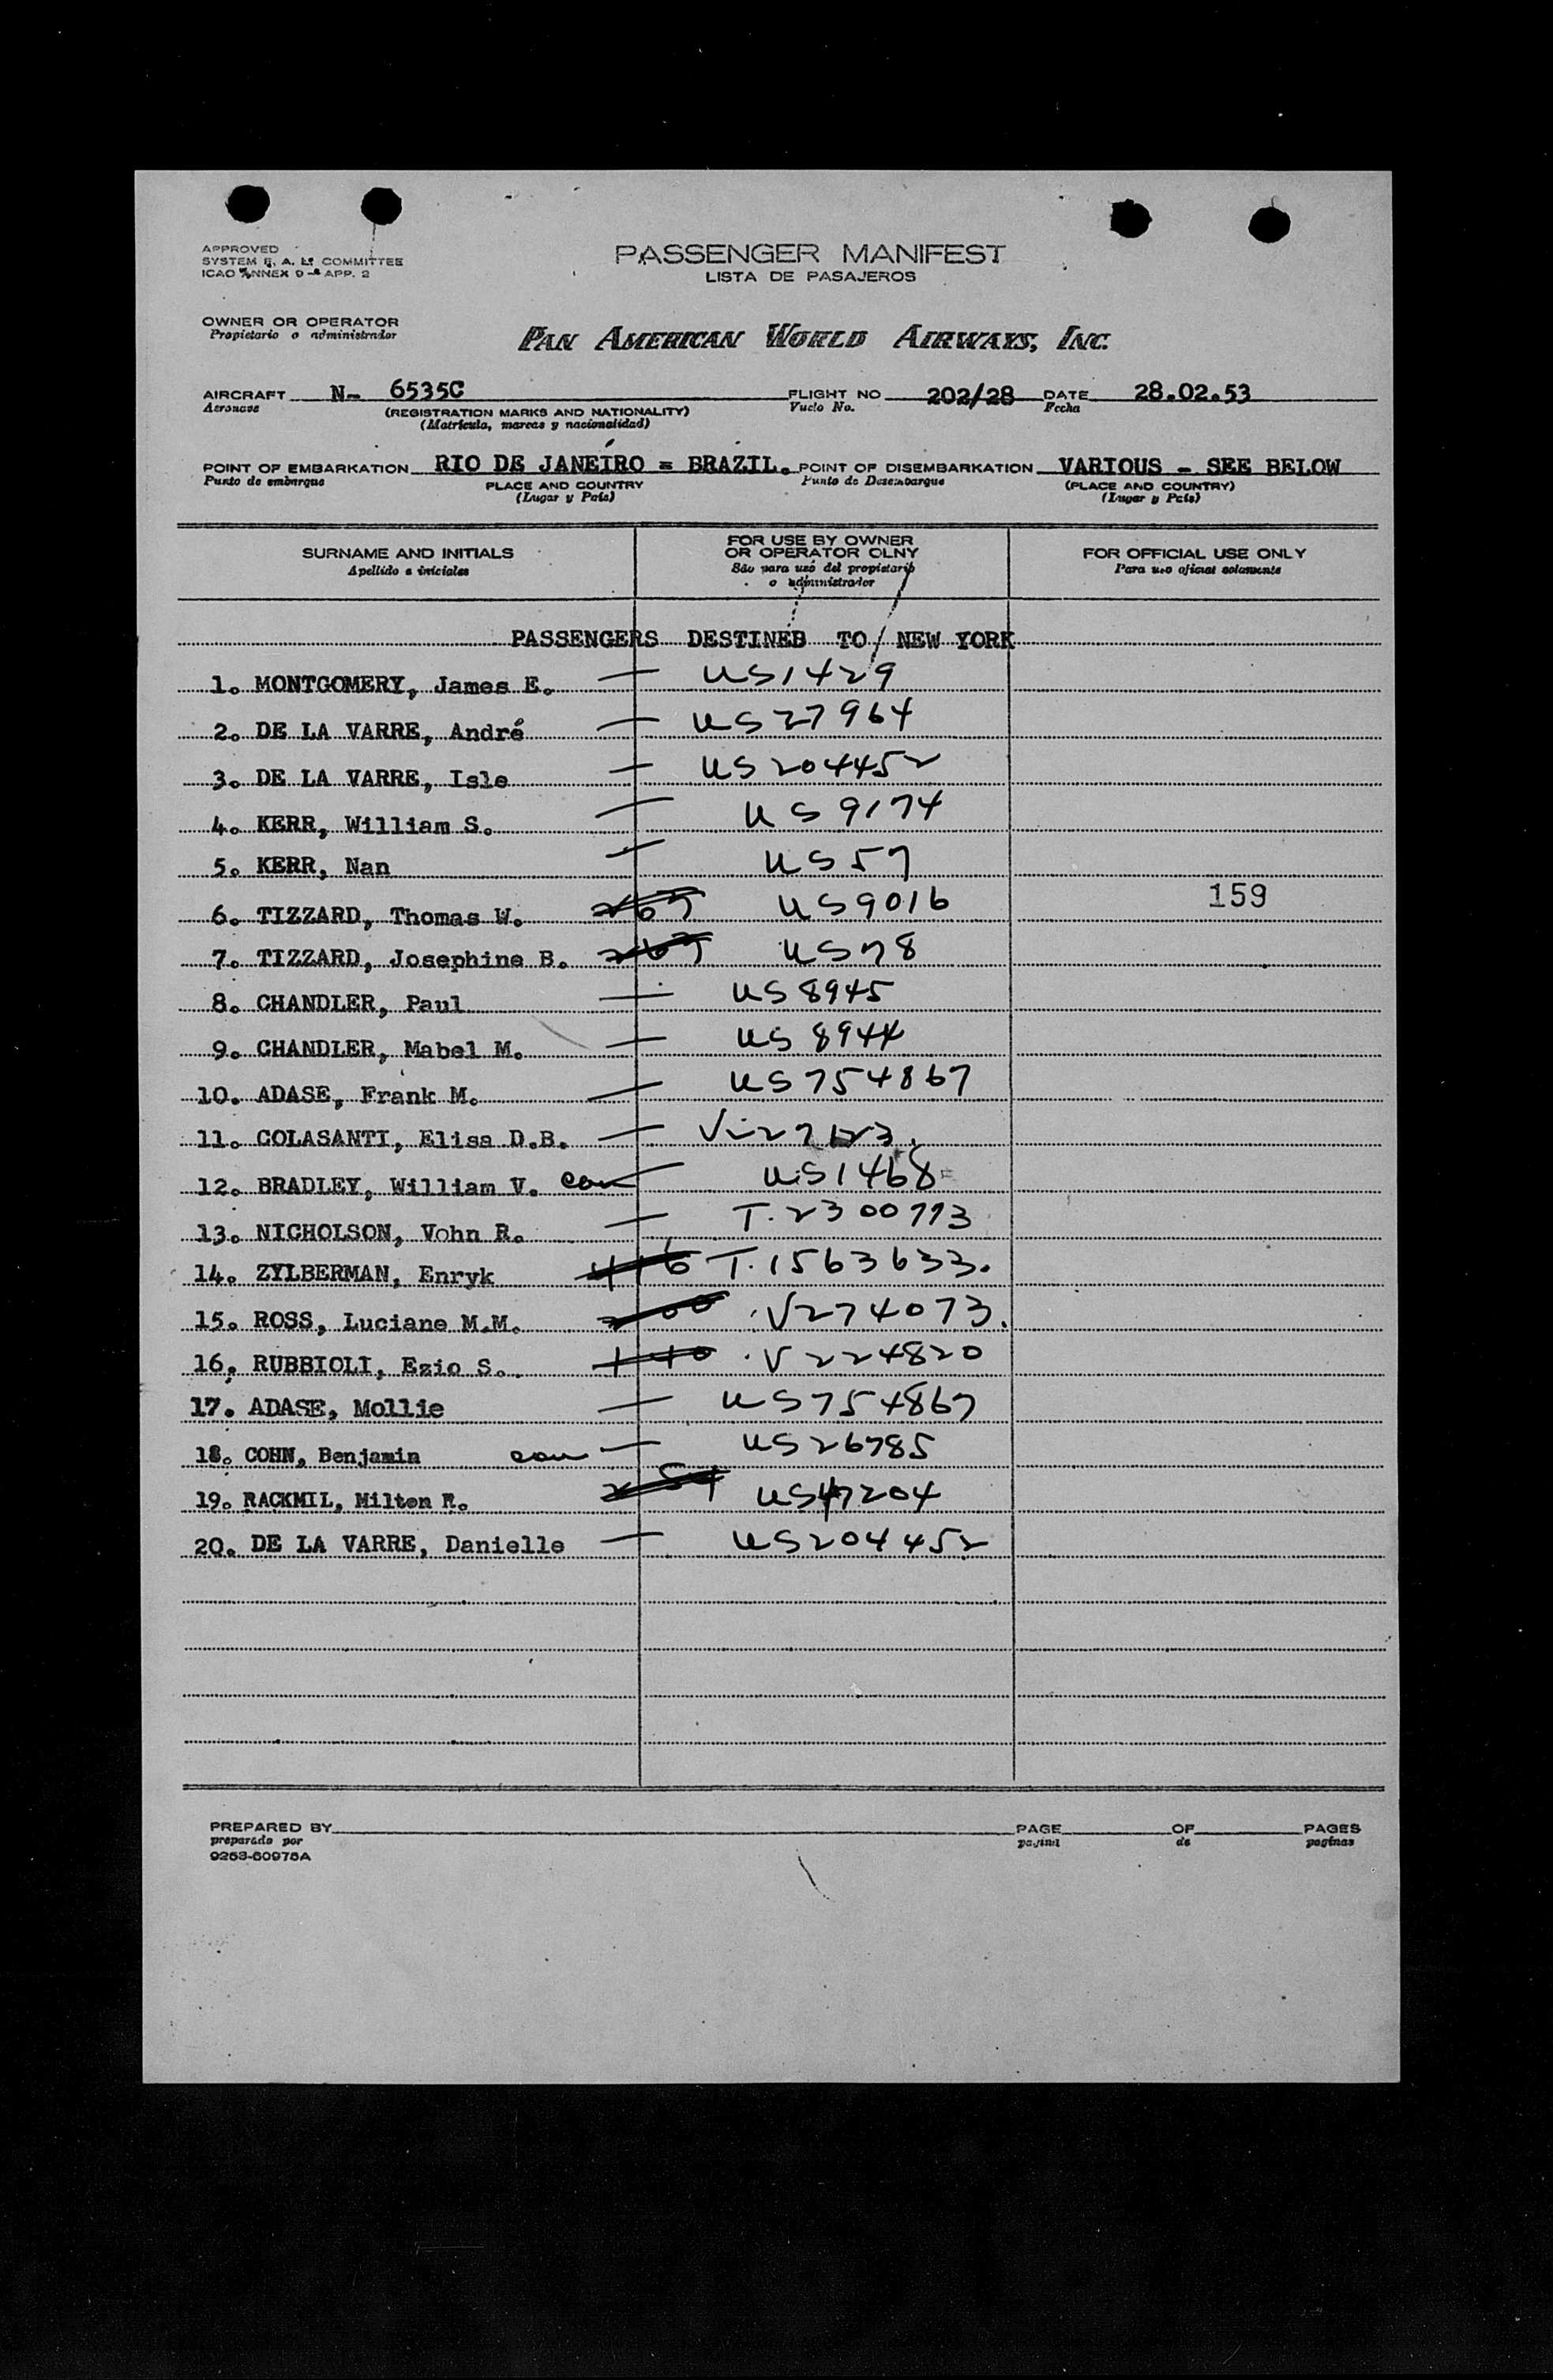 APPROVED
SYSTEM F. A. L. COMMITTEE
ICAO ANNEX 9 - APP. 2
PASSENGER MANIFEST
LISTA DE PASAJEROS
OWNER OR OPERATOR
Propietario o administrador
PAN AMERICAN WORLD AIRWAYS, INC.
AIRCRAFT N- 6535C FLIGHT NO 202/28 DATE 28.02.53
Aeronave (REGISTRATION MARKS AND NATIONALITY) Vuelo No. Fecha
(Matrícula, marcas y nacionalidad)
POINT OF EMBARKATION RIO DE JANEIRO = BRAZIL. POINT OF DISEMBARKATION VARIOUS - SEE BELOW
Punto de embarque PLACE AND COUNTRY Punto de Desembarque (PLACE AND COUNTRY)
(Lugar y País) (Lugar y País)
SURNAME AND INITIALS FOR USE BY OWNER OR OPERATOR OLNY FOR OFFICIAL USE ONLY
Apellido e iniciales Sâo para uso del propietario o administrador Para uso oficial solamente
PASSENGERS DESTINED TO / NEW YORK
1. MONTGOMERY, James E. — US1429
2. DE LA VARRE, André — US27964
3. DE LA VARRE, Isle — US204452
4. KERR, William S. — US9174
5. KERR, Nan — US57
159
6. TIZZARD, Thomas W. US9016
7. TIZZARD, Josephine B. US78
8. CHANDLER, Paul — US8945
9. CHANDLER, Mabel M. — US8944
10. ADASE, Frank M. — US754867
11. COLASANTI, Elisa D.B. —
12. BRADLEY, William V. — US1468
13. NICHOLSON, Vohn R. — T.2300773
14. ZYLBERMAN, Enryk 416 T.1563633.
15. ROSS, Luciane M.M. 200 V274073.
16. RUBBIOLI, Ezio S. 140 V224820
17. ADASE, Mollie — US754867
18. COHN, Benjamin — US26785
19. RACKMIL, Milton R. US47204
20. DE LA VARRE, Danielle — US204452
PREPARED BY PAGE OF PAGES
preparado por pagina de paginas
9263-60975A